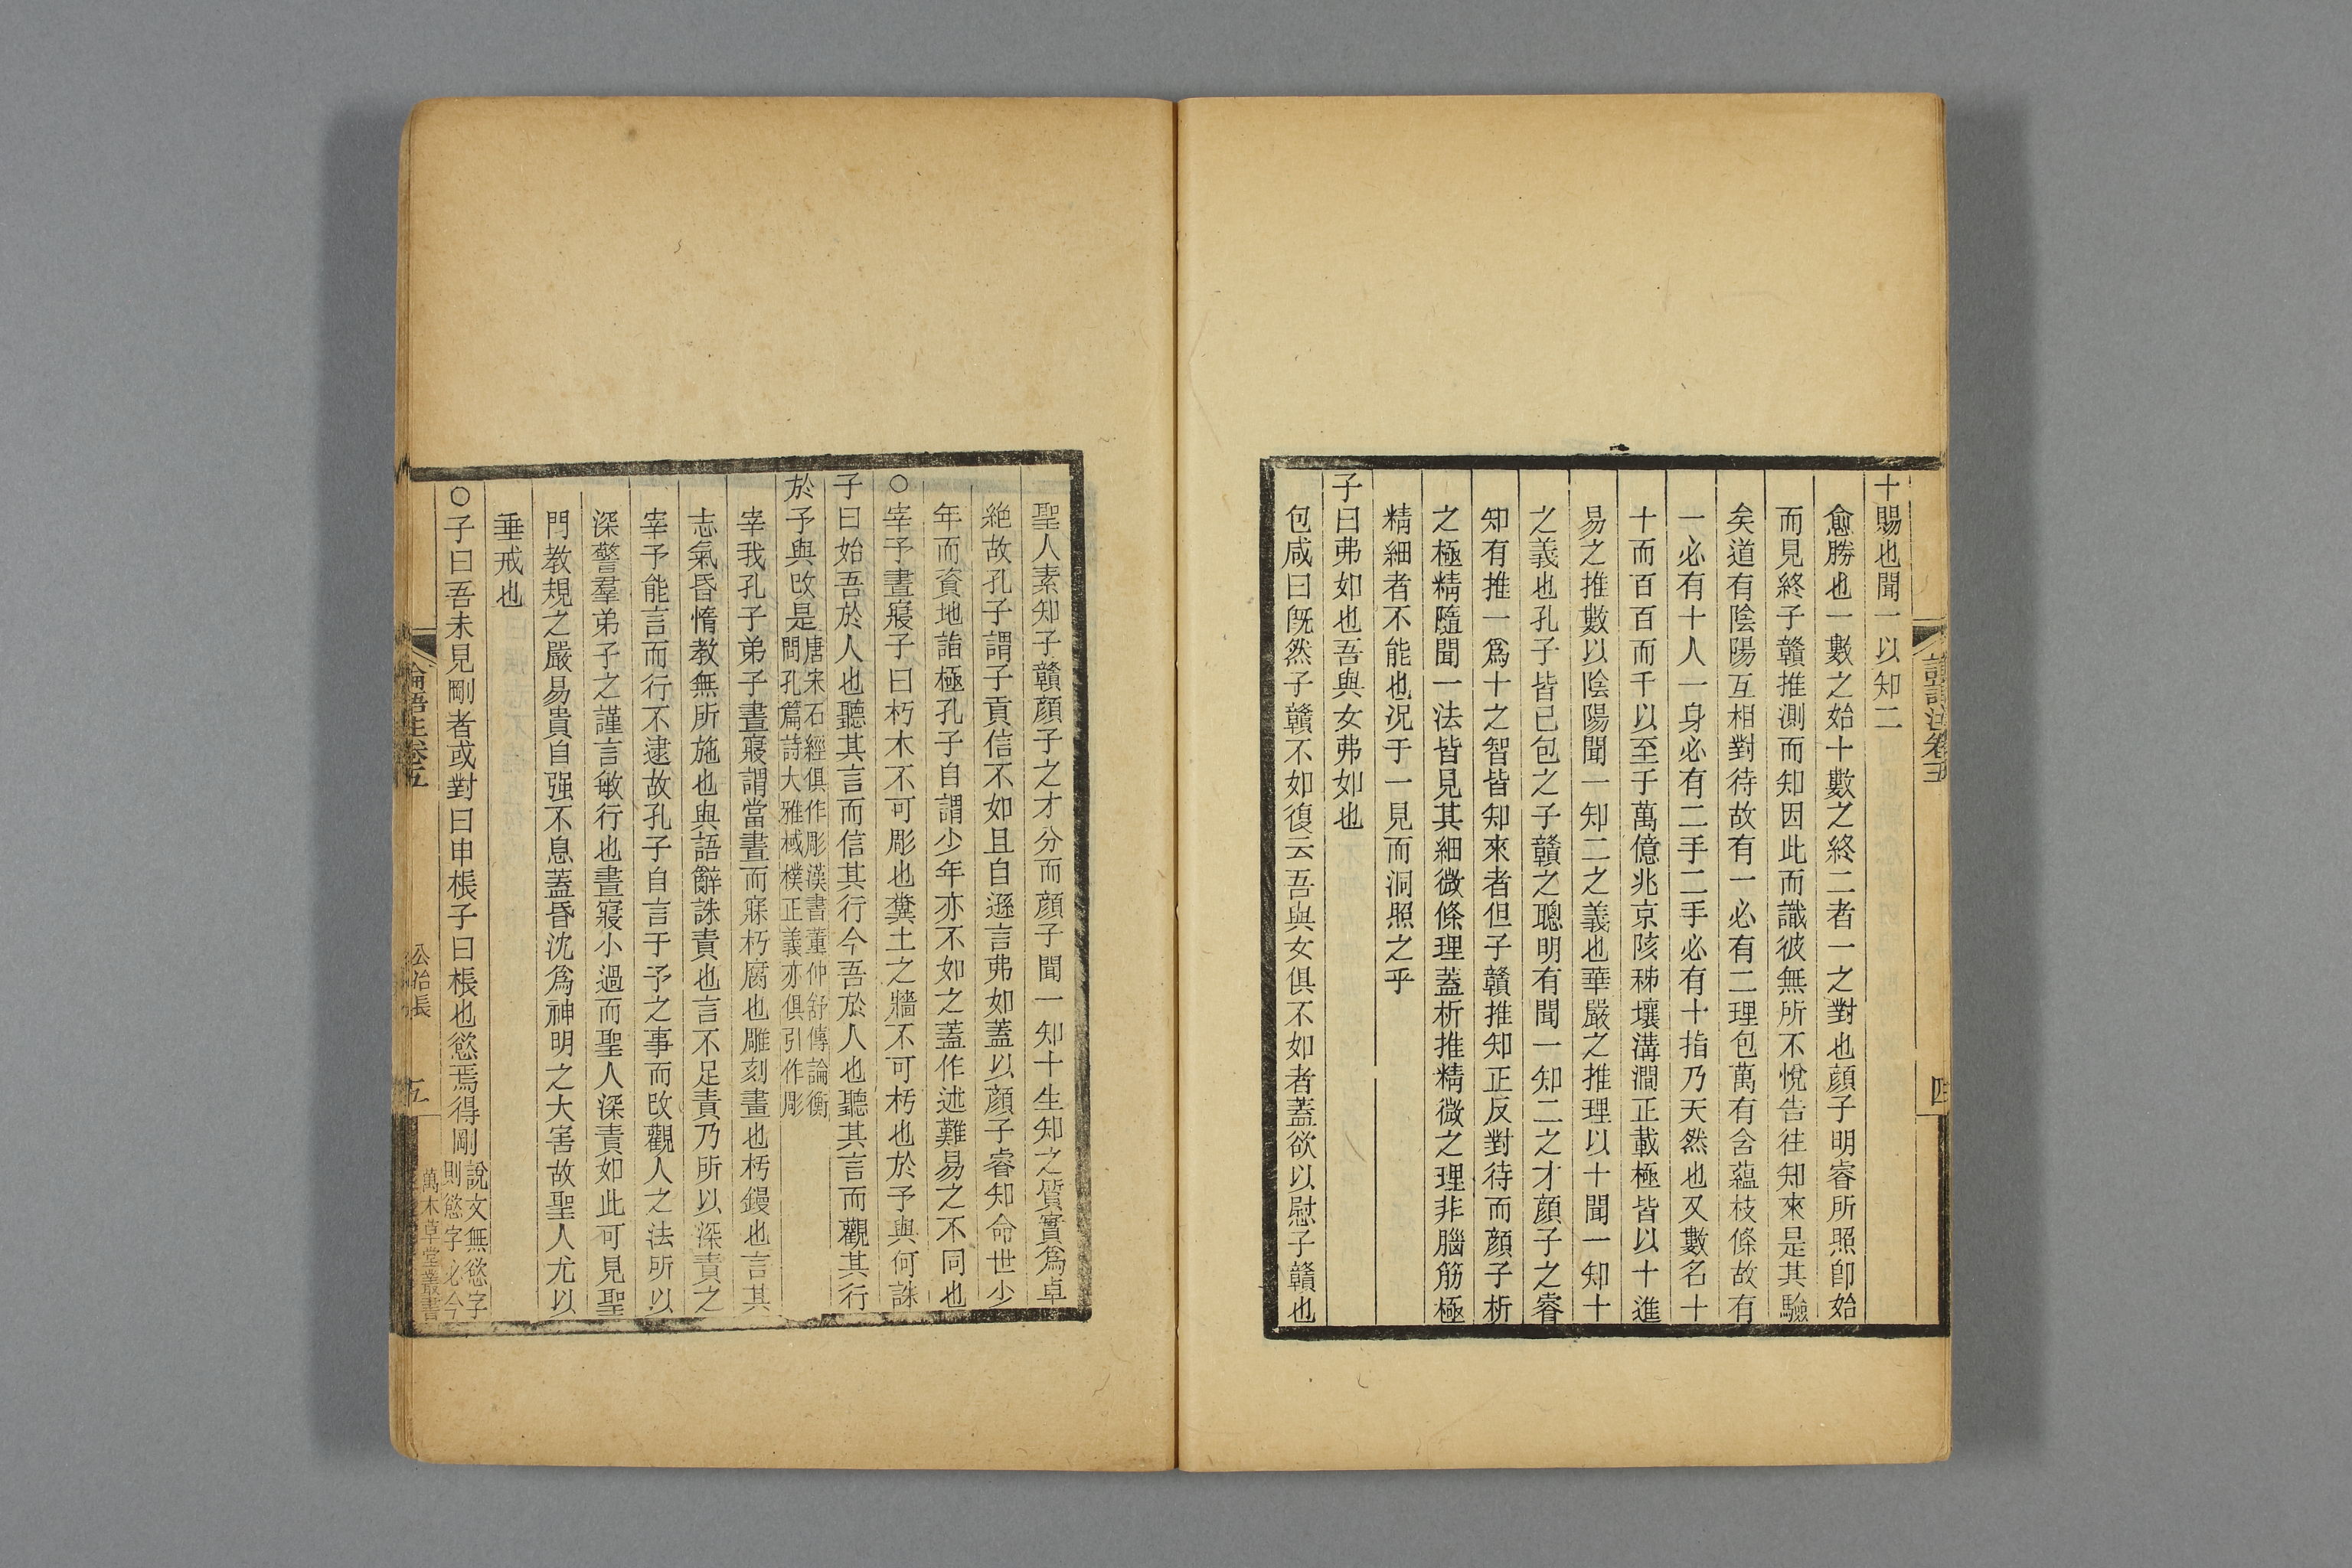 十賜也聞一以知二
愈勝也一數之始十數之終二者一之對也顏子明睿所照卽始
而見終子贛推測而知因此而識彼無所不悅告往知來是其驗
矣道有陰陽互相對待故有一必有二理包萬有含蘊枝條故有
一必有十人一身必有二手二手必有十指乃天然也又數名十
十而百百而千以至于萬億兆京陔秭壤溝澗正載極皆以十進
易之推數以陰陽聞一知二之義也華嚴之推理以十聞一知十
之義也孔子皆已包之子贛之聰明有聞一知二之才顏子之睿
知有推一爲十之智皆知來者但子贛推知正反對待而顏子析
之極精隨聞一法皆見其細微條理蓋析推精微之理非腦筋極
精細者不能也況于一見而洞照之乎
子曰弗如也吾與女弗如也
包咸曰旣然子贛不如復云吾與女俱不如者蓋欲以慰子贛也
聖人素知子贛顏子之才分而顏子聞一知十生知之質實爲卓
絶故孔子謂子貢信不如且自遜言弗如蓋以顏子睿知命世少
年而資地詣極孔子自謂少年亦不如之蓋作述難易之不同也
○宰予晝寢子曰朽木不可彫也糞土之牆不可杇也於予與何誅
子曰始吾於人也聽其言而信其行今吾於人也聽其言而觀其行
於予與改是
唐宋石經俱作彫漢書董仲舒傳論衡
問孔篇詩大雅棫樸正義亦俱引作彫
宰我孔子弟子晝寢謂當晝而寐朽腐也雕刻畫也杇鏝也言其
志氣昏惰教無所施也與語辭誅責也言不足責乃所以深責之
宰予能言而行不逮故孔子自言于予之事而改觀人之法所以
深警羣弟子之謹言敏行也晝寢小過而聖人深責如此可見聖
門教規之嚴易貴自强不息蓋昏沈爲神明之大害故聖人尤以
垂戒也
○子曰吾未見剛者或對曰申棖子曰棖也慾焉得剛
說文無慾字
則慾字必今
論語注卷五
公冶長
五
萬木草堂叢書